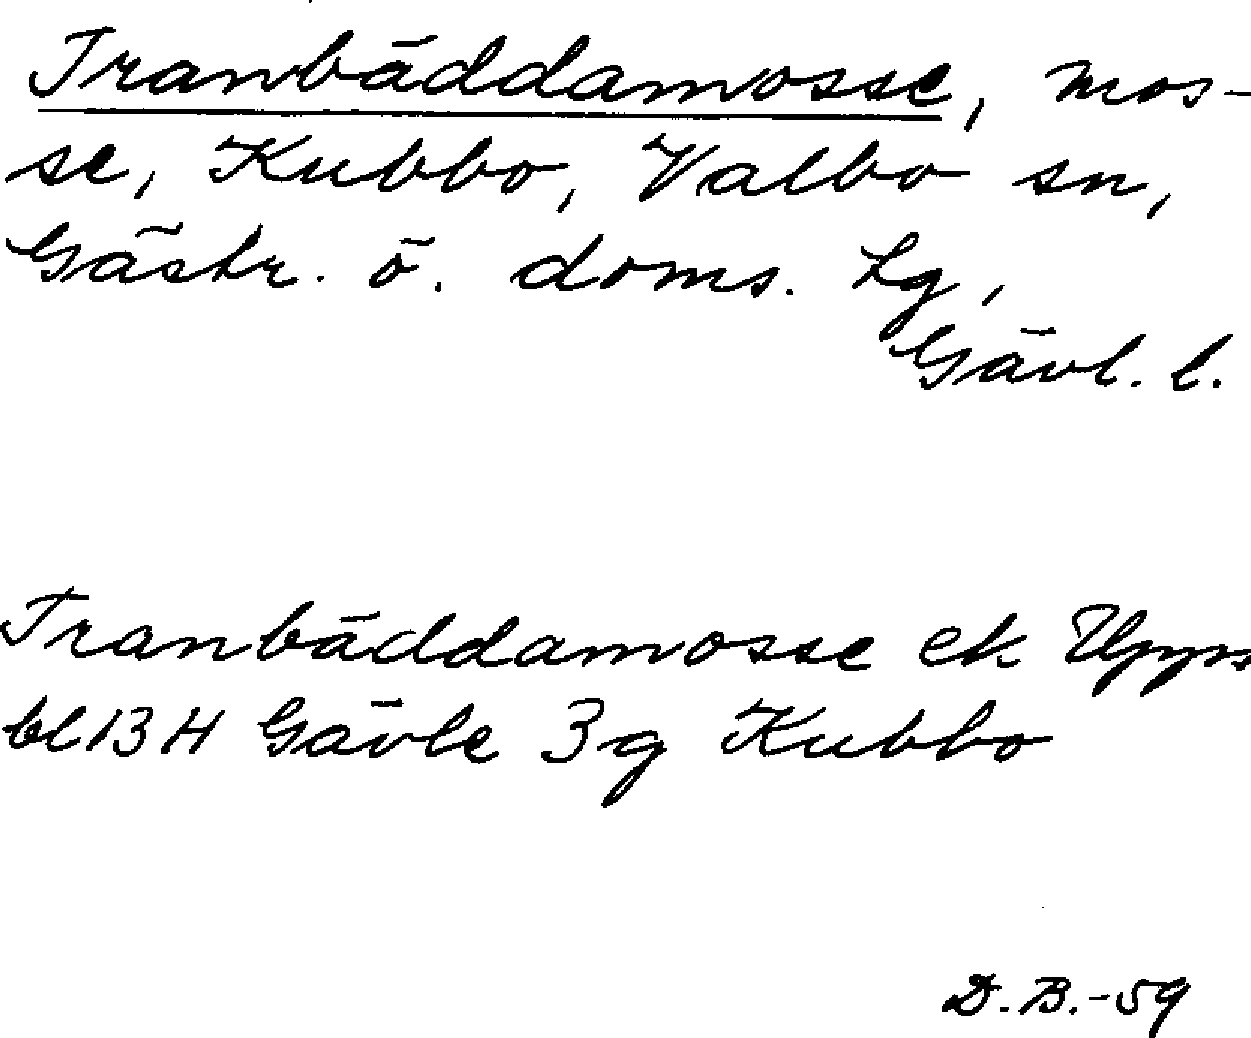 Tranbäddamosse, mos-
se, Kubbo, Valbo sn,
Gästr. ö. doms. lg,
Gävl. l.
Tranbäddamosse ek Upps
bl 13 H Gävle 3 g Kubbo
D.B.-59